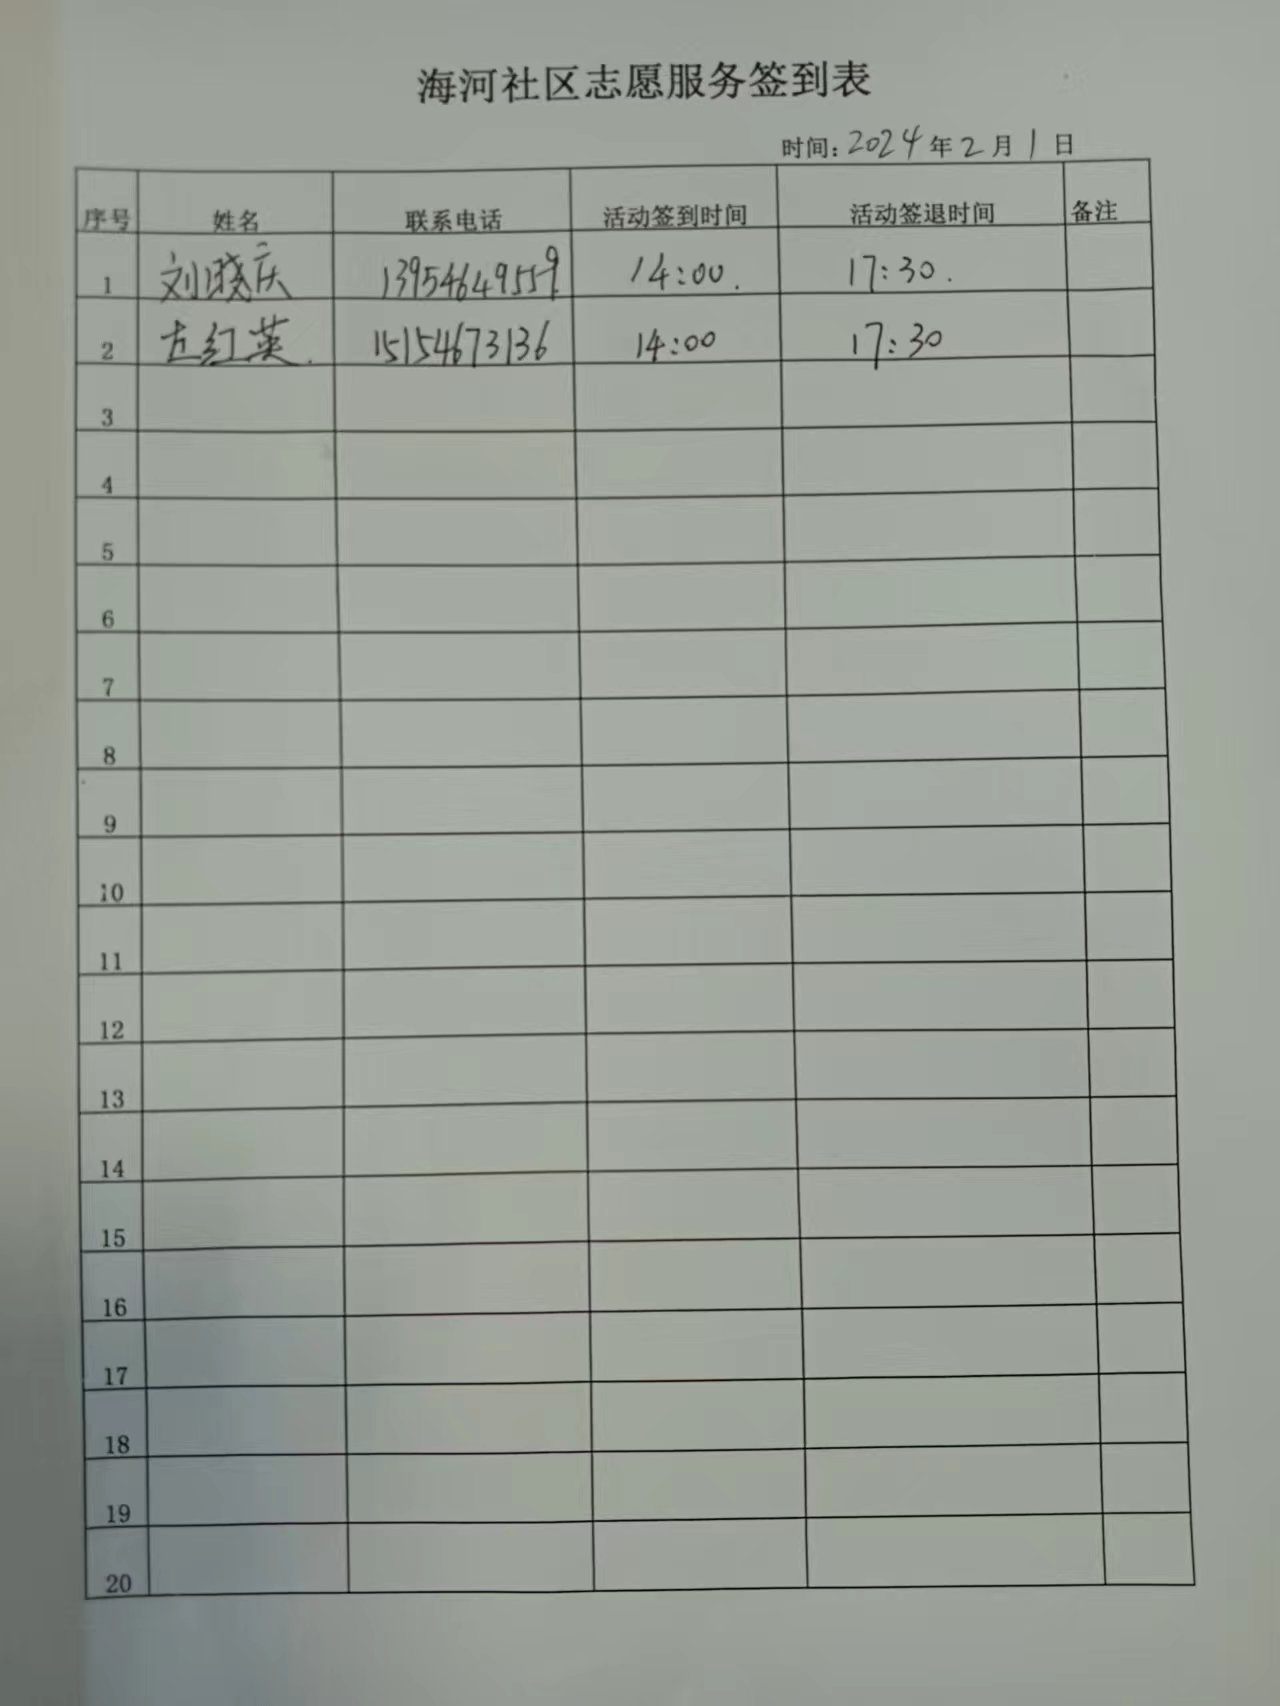 海河社区志愿服务签到表
时间: 2024 年 2 月 1 日
序号 姓名 联系电话 活动签到时间 活动签退时间 备注
1 刘晓庆 13954649559 14:00. 17:30.
2 红英. 15154673136 14:00 17:30
3
4
5
6
7
8
9
10
11
12
13
14
15
16
17
18
19
20